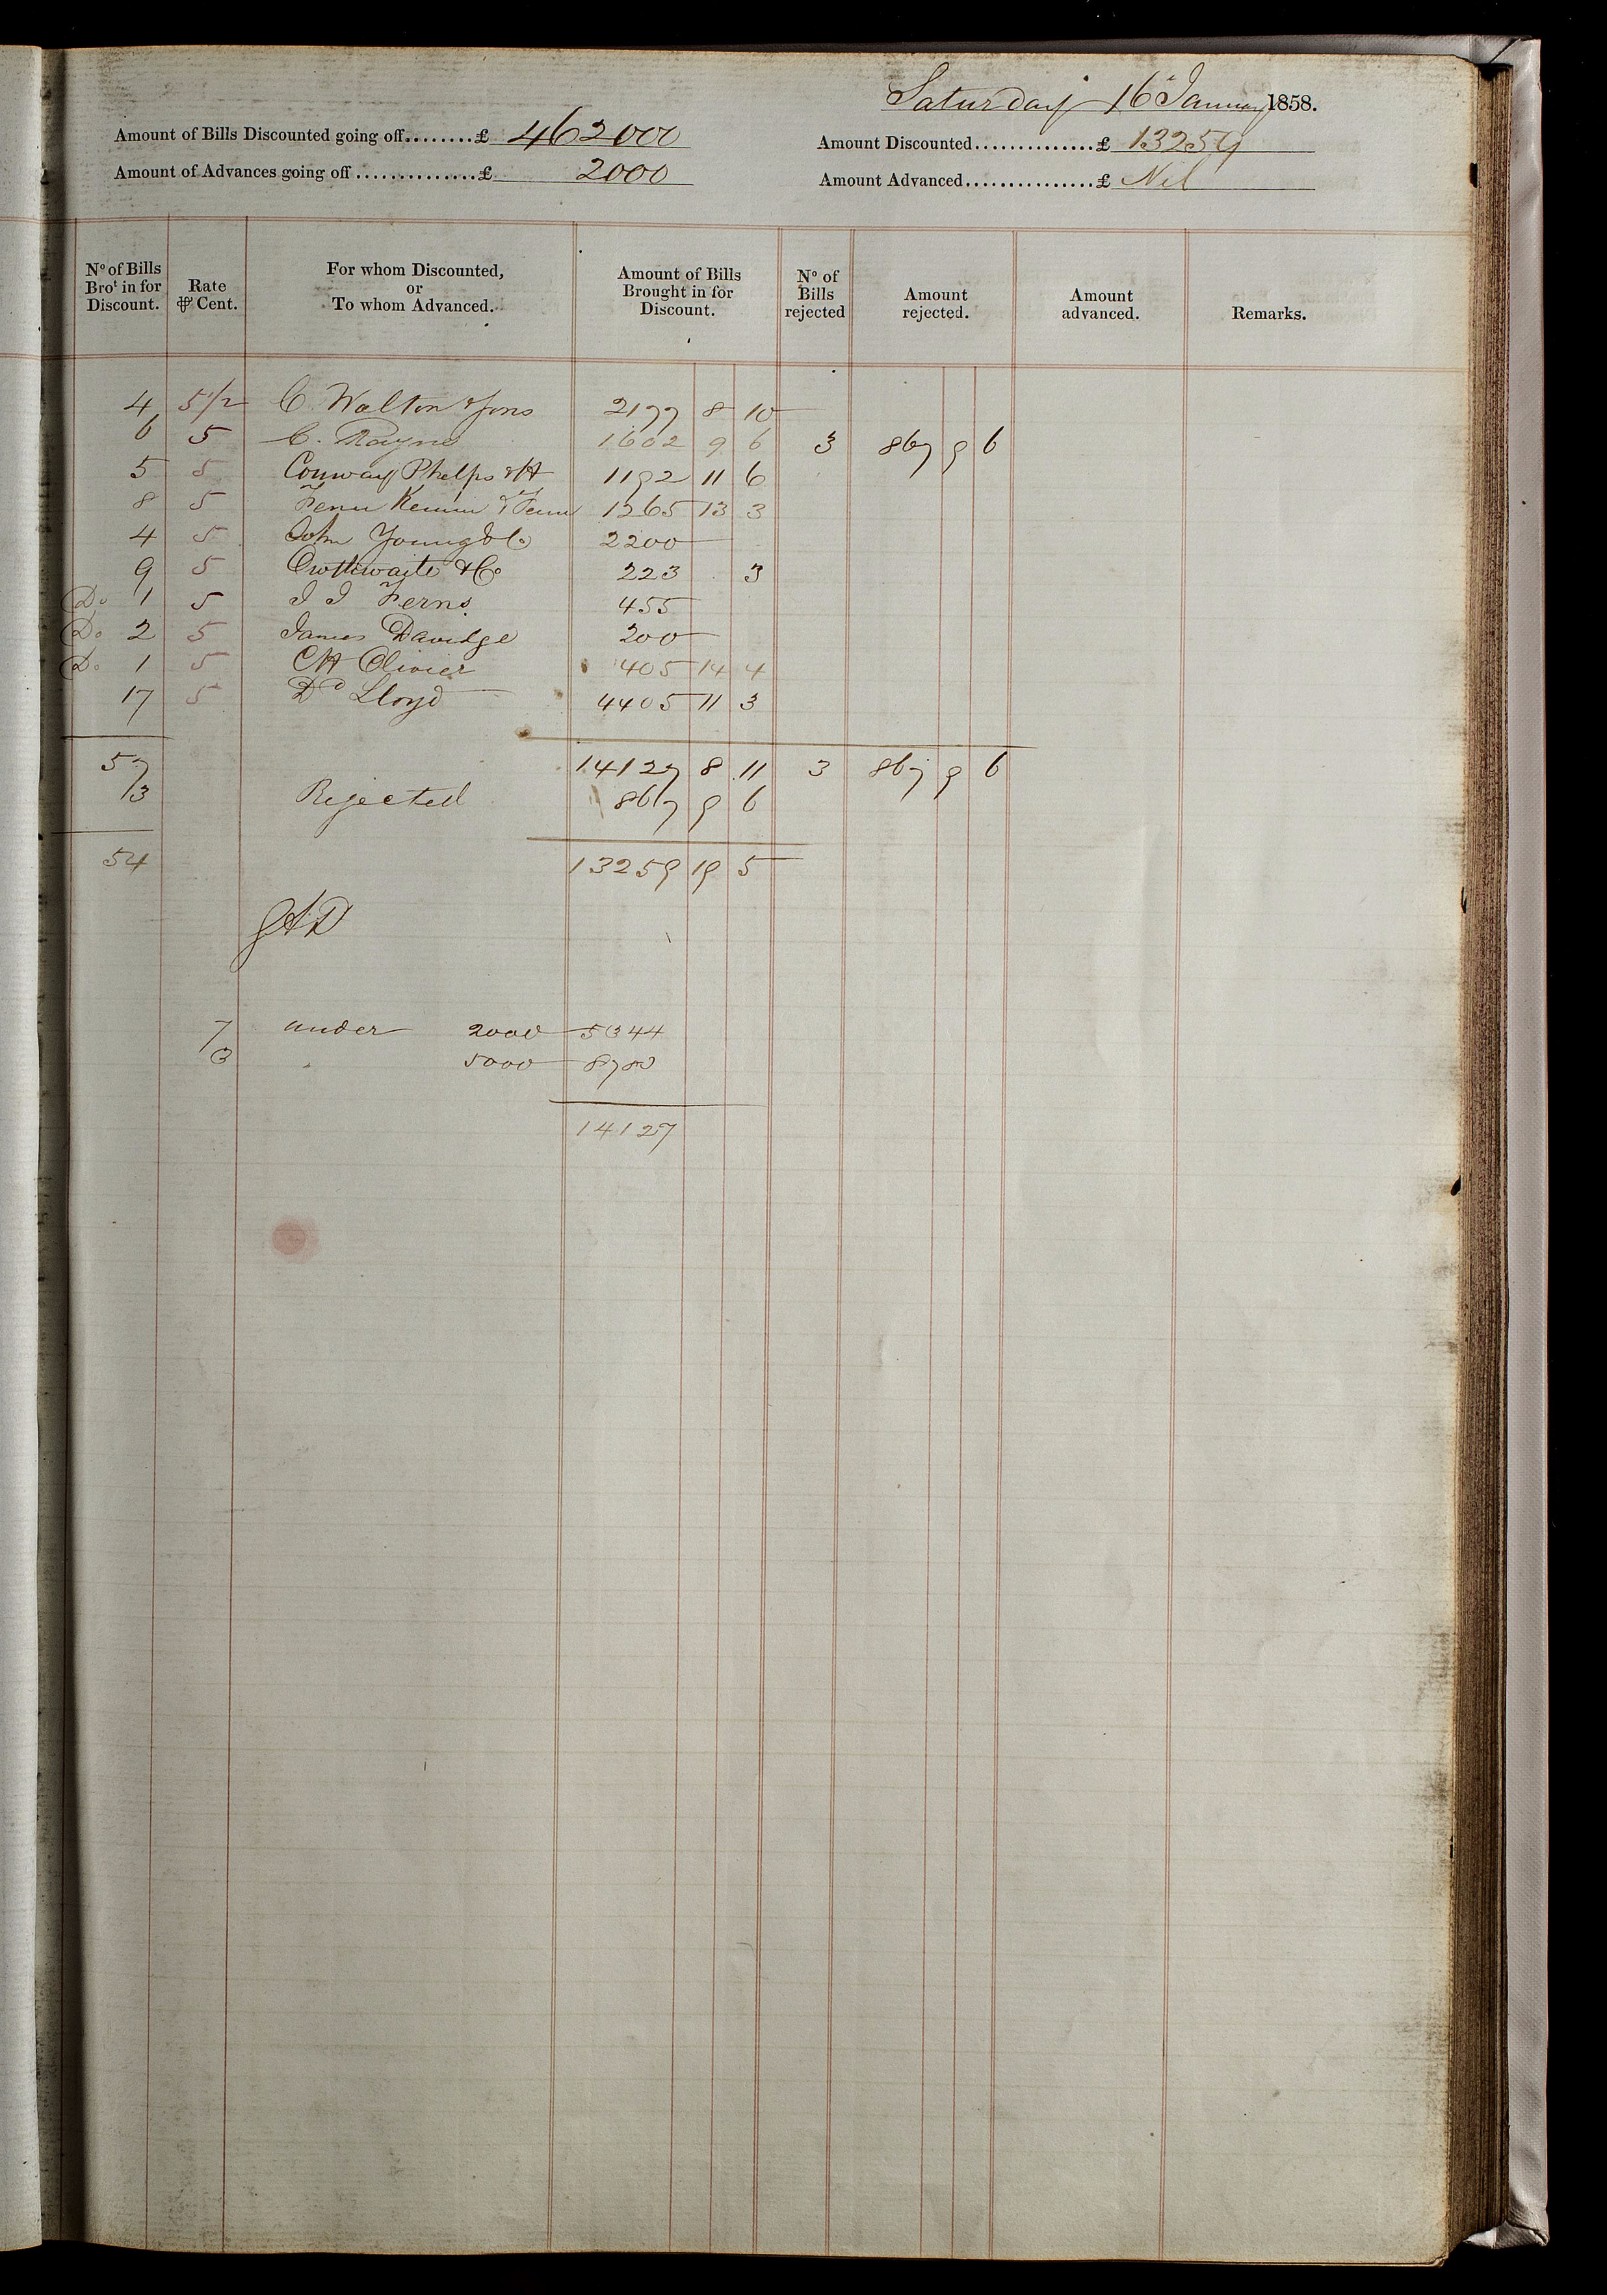 Saturday 16 January 1858.
Amount of Bills Discounted going off........£ 462000
Amount Discounted..............£ 13259
Amount of Advances going off..............£ 2000
Amount Advanced...............£ Nil
No of Bills Brot in for Discount.
Rate ⅌ Cent.
For whom Discounted, or To whom Advanced.
Amount of Bills Brought in for Discount.
No of Bills rejected
Amount rejected.
Amount advanced.
Remarks.
4 5 1/2 C. Walton & Sons 2177 8 10
6 5 C. Rayne 1602 9 6 3 867 9 6
5 5 Conway Phelps & H 1192 11 6
8 5 Fenn & Fenn 1265 13 3
4 5 John Young & Co 2200
9 5 Owthwaite & Co 223 . 3
Do 1 5 J J Ferns 455
Do 2 5 James Davidge 200
Do 1 5 CH Olivier 405 14 4
17 5 Dd Lloyd 4405 11 3
57 14127 8 11 3 867 9 6
3 Rejected 867 9 6
54 13259 19 5
7 under 2000 5344
3 5000 8783
14127